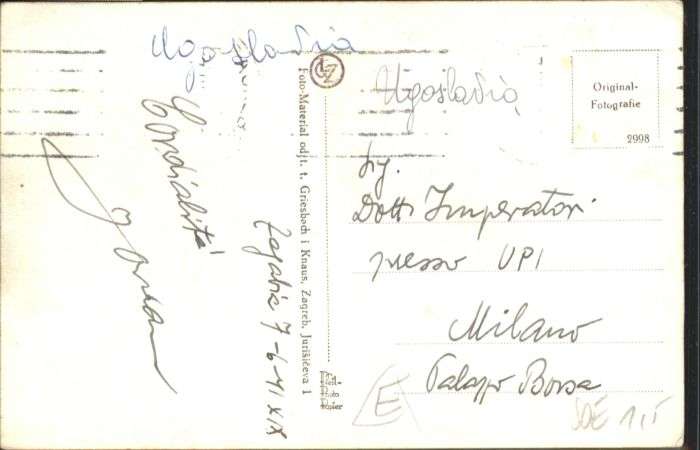 Ugoslavia
Cordialità
Zagabria 7-6-41 XIX
GKZ
Foto-Material od t. t. Griesbach i Knaus, Zagreb, Jurišićeva 1
Ugoslavia
Original-
Fotografie
2998
Sig.
Dott. Imperatori
presso UPI
Milano
Palazzo Borsa
E